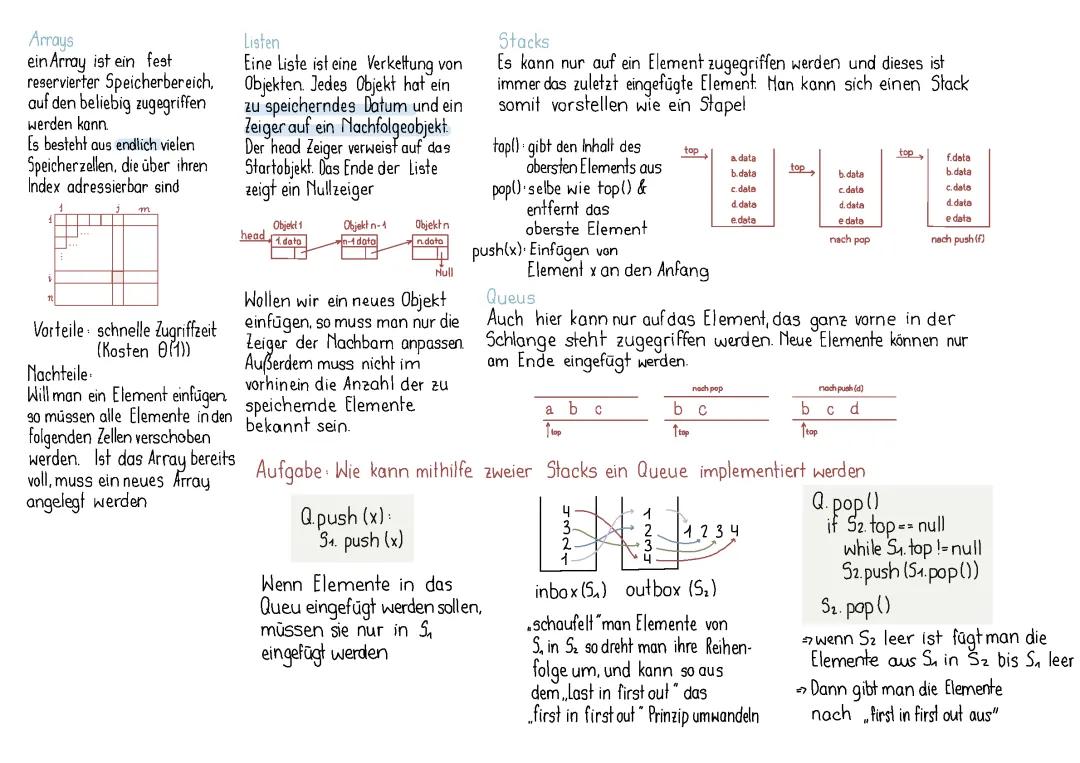 Arrays
ein Array ist ein fest
reservierter Speicherbereich,
auf den beliebig zugegriffen
werden kann.
Es besteht aus endlich vielen
Speicherzellen, die über ihren
Index adressierbar sind
1 j m
1
...
...
:
i
n
Vorteile: schnelle Zugriffzeit
(Kosten Θ(1))
Nachteile:
Will man ein Element einfügen,
so müssen alle Elemente in den
folgenden Zellen verschoben
werden. Ist das Array bereits
voll, muss ein neues Array
angelegt werden
Listen
Eine Liste ist eine Verkettung von
Objekten. Jedes Objekt hat ein
zu speicherndes Datum und ein
Zeiger auf ein Nachfolgeobjekt.
Der head Zeiger verweist auf das
Startobjekt. Das Ende der Liste
zeigt ein Nullzeiger
Objekt 1 Objekt n-1 Objekt n
head 1.data n-1 data n.data
Null
Wollen wir ein neues Objekt
einfügen, so muss man nur die
Zeiger der Nachbarn anpassen.
Außerdem muss nicht im
vorhinein die Anzahl der zu
speichernde Elemente
bekannt sein.
Stacks
Es kann nur auf ein Element zugegriffen werden und dieses ist
immer das zuletzt eingefügte Element. Man kann sich einen Stack
somit vorstellen wie ein Stapel
top(): gibt den Inhalt des
obersten Elements aus
pop(): selbe wie top() &
entfernt das
oberste Element
push(x): Einfügen von
Element x an den Anfang
top
a.data
b.data
c.data
d.data
e.data
top
b.data
c.data
d.data
e data
nach pop
top
f.data
b.data
c.data
d.data
e data
nach push(f)
Queus
Auch hier kann nur auf das Element, das ganz vorne in der
Schlange steht zugegriffen werden. Neue Elemente können nur
am Ende eingefügt werden.
a b c
top
nach pop
b c
top
nach push(d)
b c d
top
Aufgabe: Wie kann mithilfe zweier Stacks ein Queue implementiert werden
Q.push (x):
S1. push (x)
Wenn Elemente in das
Queu eingefügt werden sollen,
müssen sie nur in S1
eingefügt werden
4 1
3 2 1 2 3 4
2 3
1 4
inbox (S1) outbox (S2)
„schaufelt" man Elemente von
S1 in S2 so dreht man ihre Reihen-
folge um, und kann so aus
dem „Last in first out" das
„first in first out" Prinzip umwandeln
Q.pop()
if S2.top == null
while S1.top != null
S2.push (S1.pop())
S2.pop()
⇒ wenn S2 leer ist fügt man die
Elemente aus S1 in S2 bis S1 leer
⇒ Dann gibt man die Elemente
nach „first in first out aus"